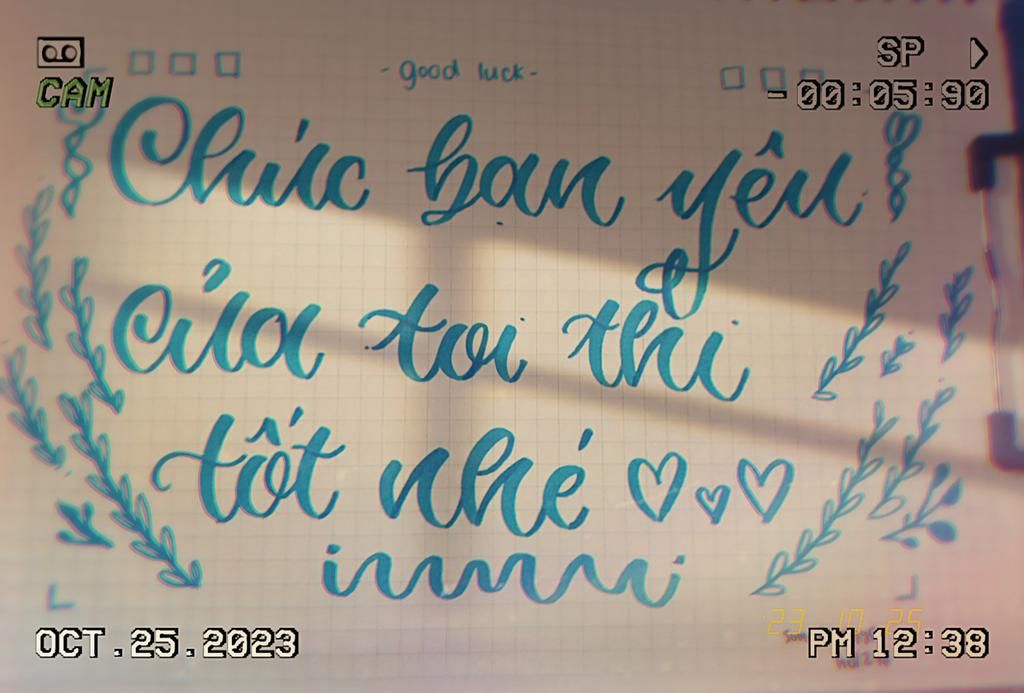 SP
CAM
-00:05:90
- good luck -
Chúc bạn yêu
của toi thi
tốt nhé
OCT.25.2023
23 10 25
PM 12:38